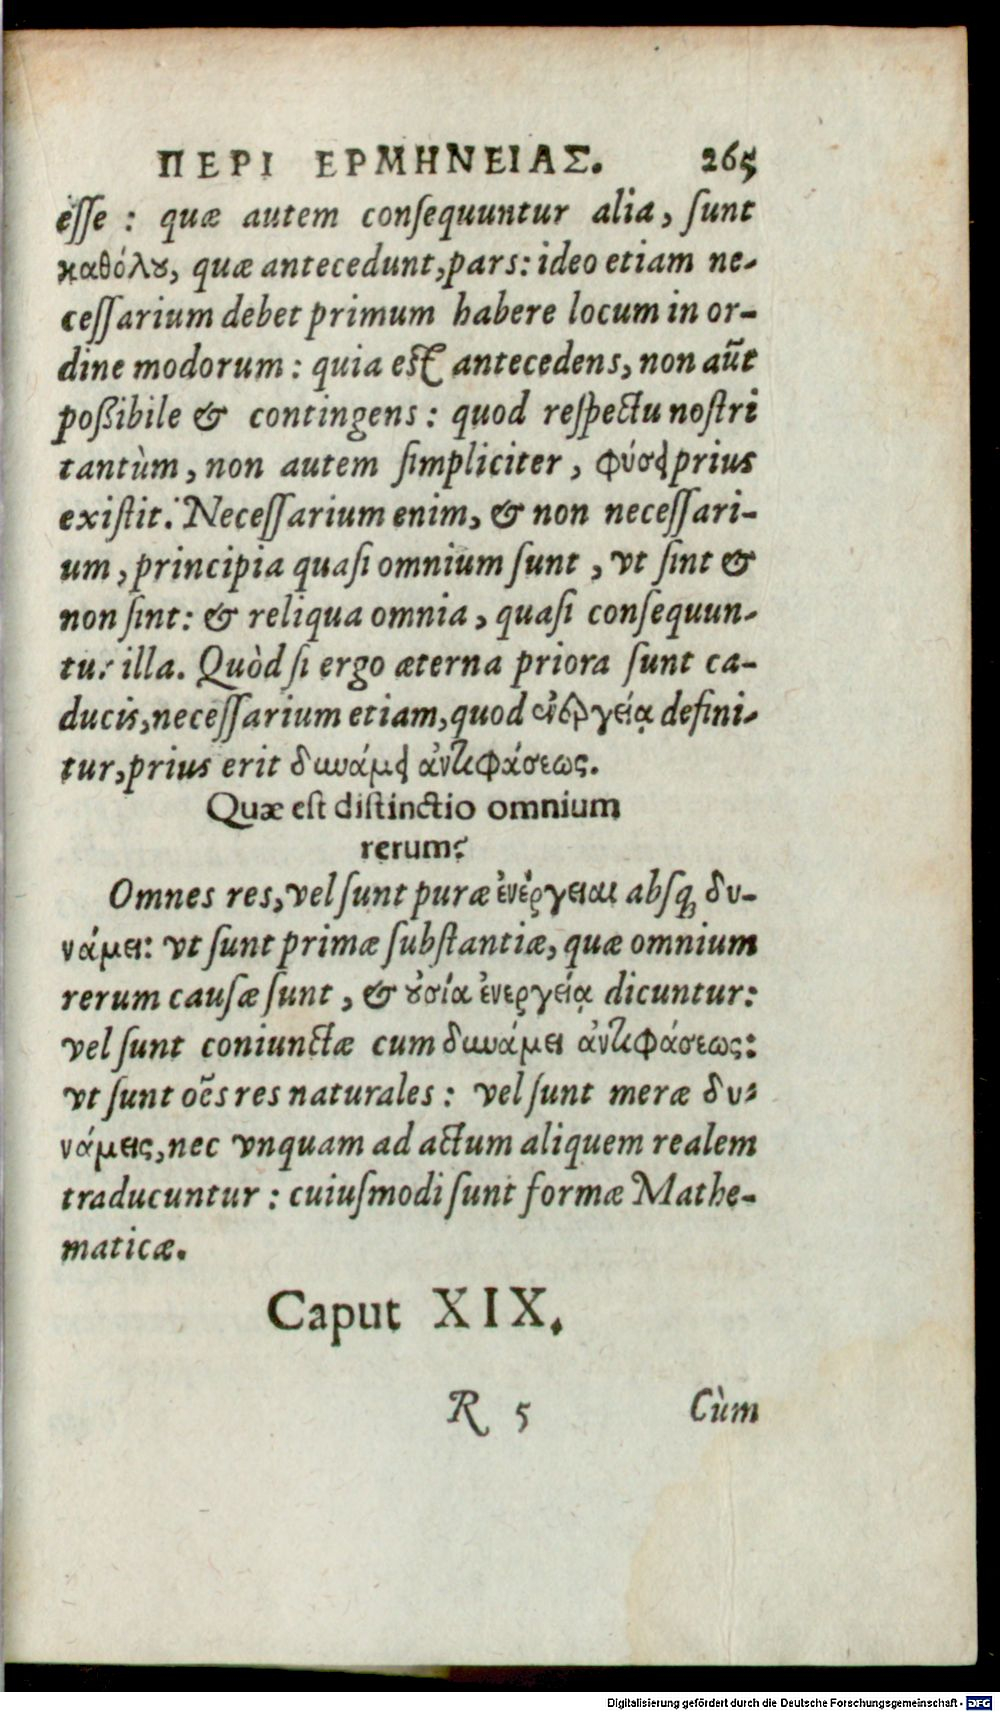 ΠΕΡΙ ΕΡΜΗΝΕΙΑΣ. 265
esse : quæ autem consequuntur alia, sunt
καθόλȣ, quæ antecedunt, pars: ideo etiam ne-
cessarium debet primum habere locum in or-
dine modorum: quia est antecedens, non aūt
poßibile & contingens: quod respectu nostri
tantùm, non autem simpliciter, φύσει prius
existit. Necessarium enim, & non necessari-
um, principia quasi omnium sunt, vt sint &
non sint: & reliqua omnia, quasi consequun-
tur illa. Quòd si ergo æterna priora sunt ca-
ducis, necessarium etiam, quod ἐνεργείᾳ defini-
tur, prius erit δυνάμει ἀντιφάσεως.
Quæ est distinctio omnium
rerum?
Omnes res, vel sunt puræ ἐνέργειαι absq; δυ-
νάμει: vt sunt primæ substantiæ, quæ omnium
rerum causæ sunt, & ȣσία ἐνεργείᾳ dicuntur:
vel sunt coniunctæ cum δυνάμει ἀντιφάσεως:
vt sunt oēs res naturales: vel sunt meræ δυ-
νάμεις, nec vnquam ad actum aliquem realem
traducuntur: cuiusmodi sunt formæ Mathe-
maticæ.
Caput XIX.
R 5 Cùm
Digitalisierung gefördert durch die Deutsche Forschungsgemeinschaft - DFG